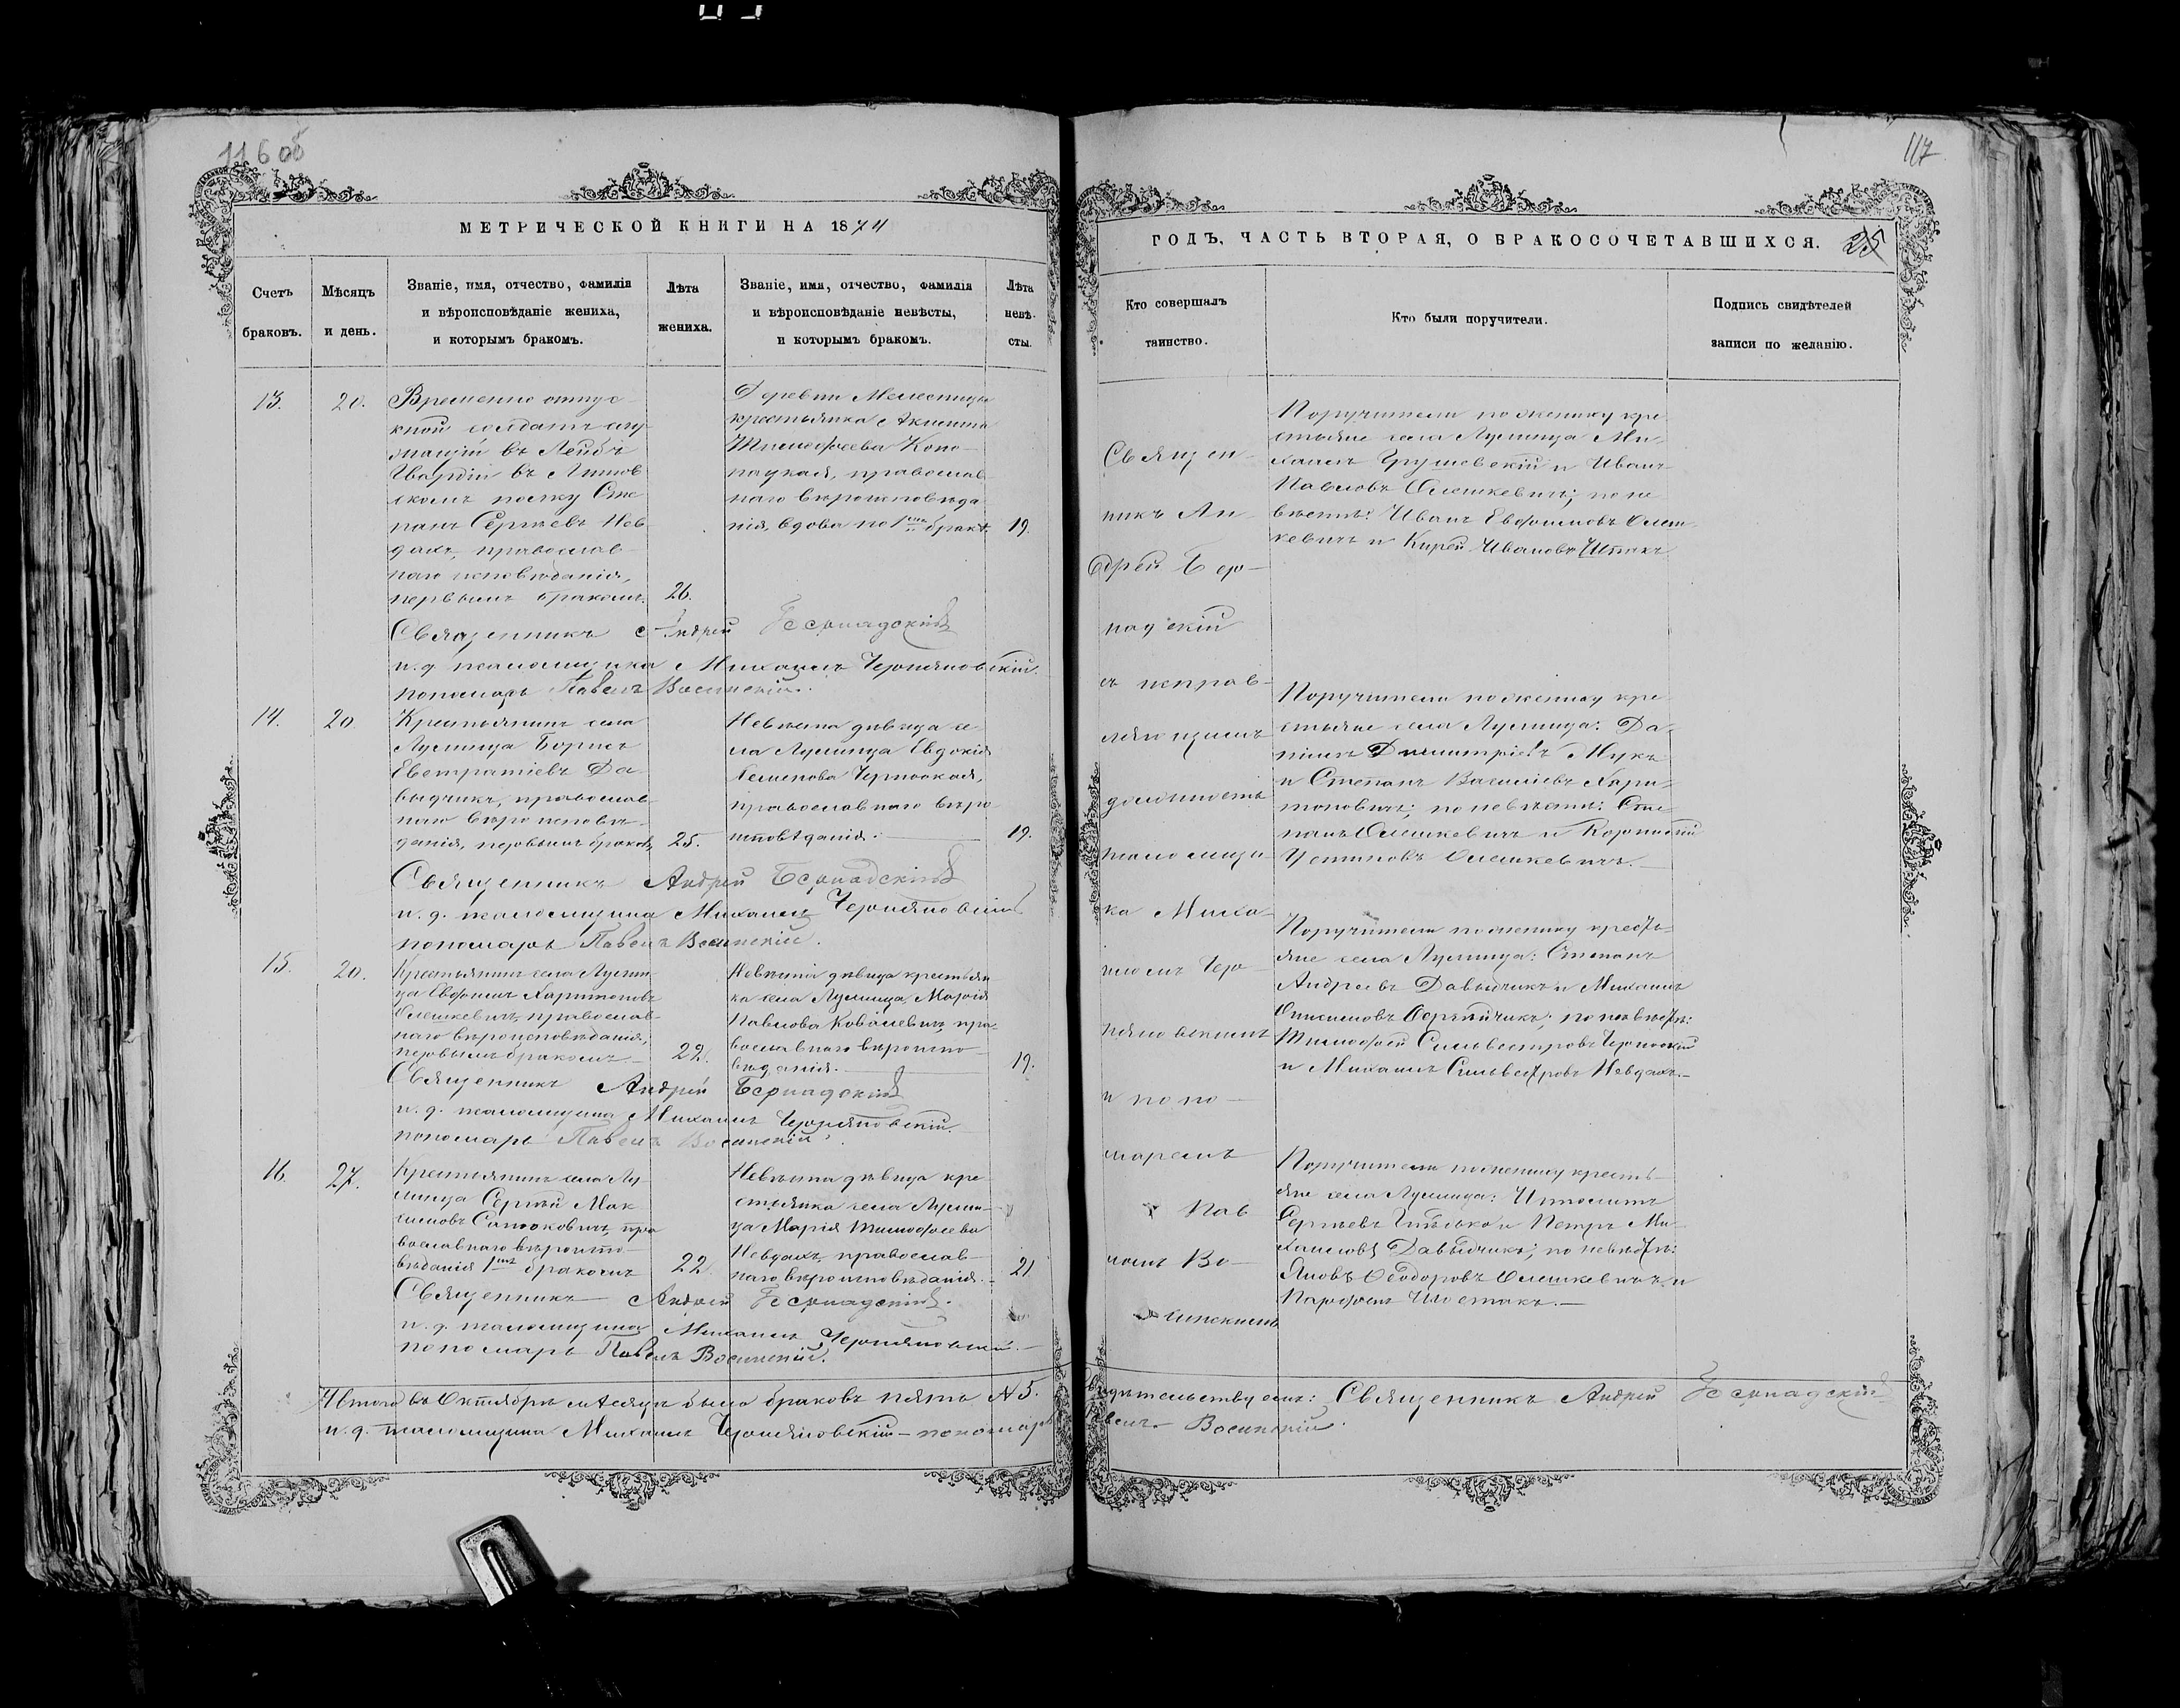 116 об
МЕТРИЧЕСКОЙ КНИГИ НА 1874
Счетъ браковъ.
Мѣсяцъ и день.
Званіе, имя, отчество, фамилія и вѣроисповѣданіе жениха, и которымъ бракомъ.
Лѣта жениха.
Званіе, имя, отчество, фамилія и вѣроисповѣданіе невѣсты, и которымъ бракомъ.
Лѣта невѣсты.
13.
20.
Временно отпус-
кной солдатъ слу
жащій въ Лейбъ
Гвардіи въ Литов
скомъ полку Сте
панъ Сергѣевъ Нев
дахъ, православ-
наго исповѣданія,
первымъ бракомъ.
26.
Деревни
крестьянка Акилина
Тимофеева Коно-
пацкая, православ
наго вѣроисповѣда
нія, вдова по 1мъ бракѣ
19.
Священникъ Андрей Бернадскій
и. д. псаломщика Михаилъ Черняковскій
пономарь Павелъ Восинскій.
14.
20.
Крестьянинъ села
Лунинца Борисъ
Евстратіевъ Да-
выдчикъ, православ-
наго вѣроисповѣ-
данія, первымъ браком,
25.
Невѣста дѣвица се
ла Лунинца Евдокія
Семенова Черноокая,
православнаго вѣро
исповѣданія.
19.
Священникъ Андрей Бернадскій
и. д. псаломщика Михаилъ Черняковскій
пономарь Павелъ Восинскій.
15.
20.
Крестьянинъ села Лунин
ца Евфимъ Харитоновъ
Олешкевичъ, православ-
наго вѣроисповѣданія,
первымъ бракомъ
22.
Невѣста дѣвица крестьян
ка села Лунинца Марія
Павлова Ковалевичъ пра-
вославнаго вѣроиспо-
вѣданія.
19.
Священникъ Андрей Бернадскій
и. д. псаломщика Михаилъ Черняковскій.
пономарь Павелъ Восинскій.
16.
27.
Крестьянинъ села Лу
нинца Сергѣй Мак
симовъ пра
вославнаго вѣроиспо-
вѣданія 1мъ бракомъ
22.
Невѣста дѣвица кре
стьянка села Лунин-
ца Марія Тимофеева
Невдахъ, православ-
наго вѣроисповѣданія.
21
Священникъ Андрей Бернадскій.
и. д. псаломщика Михаилъ Черняковскій.
пономарь Павелъ Восинскій.
Итого въ Октябрѣ мѣсяцѣ было браковъ пять № 5.
и. д. псаломщика Михаилъ Черняковскій - пономарь
117
ГОДЪ, ЧАСТЬ ВТОРАЯ, О БРАКОСОЧЕТАВШИХСЯ. 25
Кто совершалъ таинство.
Кто были поручители.
Подпись свидѣтелей записи по желанію.
Священ-
никъ Ан-
дрей Бер-
надскій
съ исправ-
ляющимъ
должность
псаломщи-
ка Миха-
иломъ Чер-
няковскимъ
и поно-
маремъ
Пав
ломъ Во-
синскимъ
Поручители по жениху кре
стьяне села Лунинца Ми-
хаилъ Грушевскій и Иванъ
Павловъ Олешкевичъ; по не
вѣстѣ: Иванъ Евфимовъ Олеш
кевичъ и Кирей Ивановъ
Поручители по жениху кре
стьяне села Лунинца: Да-
ніилъ Димитріевъ Мукъ
и Степанъ Василіевъ Хари-
тоновичъ; по невѣстѣ: Сте
панъ Олешкевичъ и Корнилій
Устиновъ Олешкевичъ.
Поручители по жениху кресть-
яне села Лунинца: Степанъ
Андреевъ Давыдчикъ и Михаилъ
по невѣстѣ:
Тимофей Сильвестровъ Черноокій
и Михаилъ Сильвестровъ Невдахъ.
Поручители по жениху кресть-
яне села Лунинца: Ипполитъ
Сергѣевъ и Петръ Ми-
хаиловъ Давыдчикъ; по невѣстѣ:
Яковъ Ѳеодоровъ Олешкевичъ и
Парфенъ Шостакъ.
Свидѣтельствуемъ: Священникъ Андрей Бернадскій
Павелъ Восинскій.